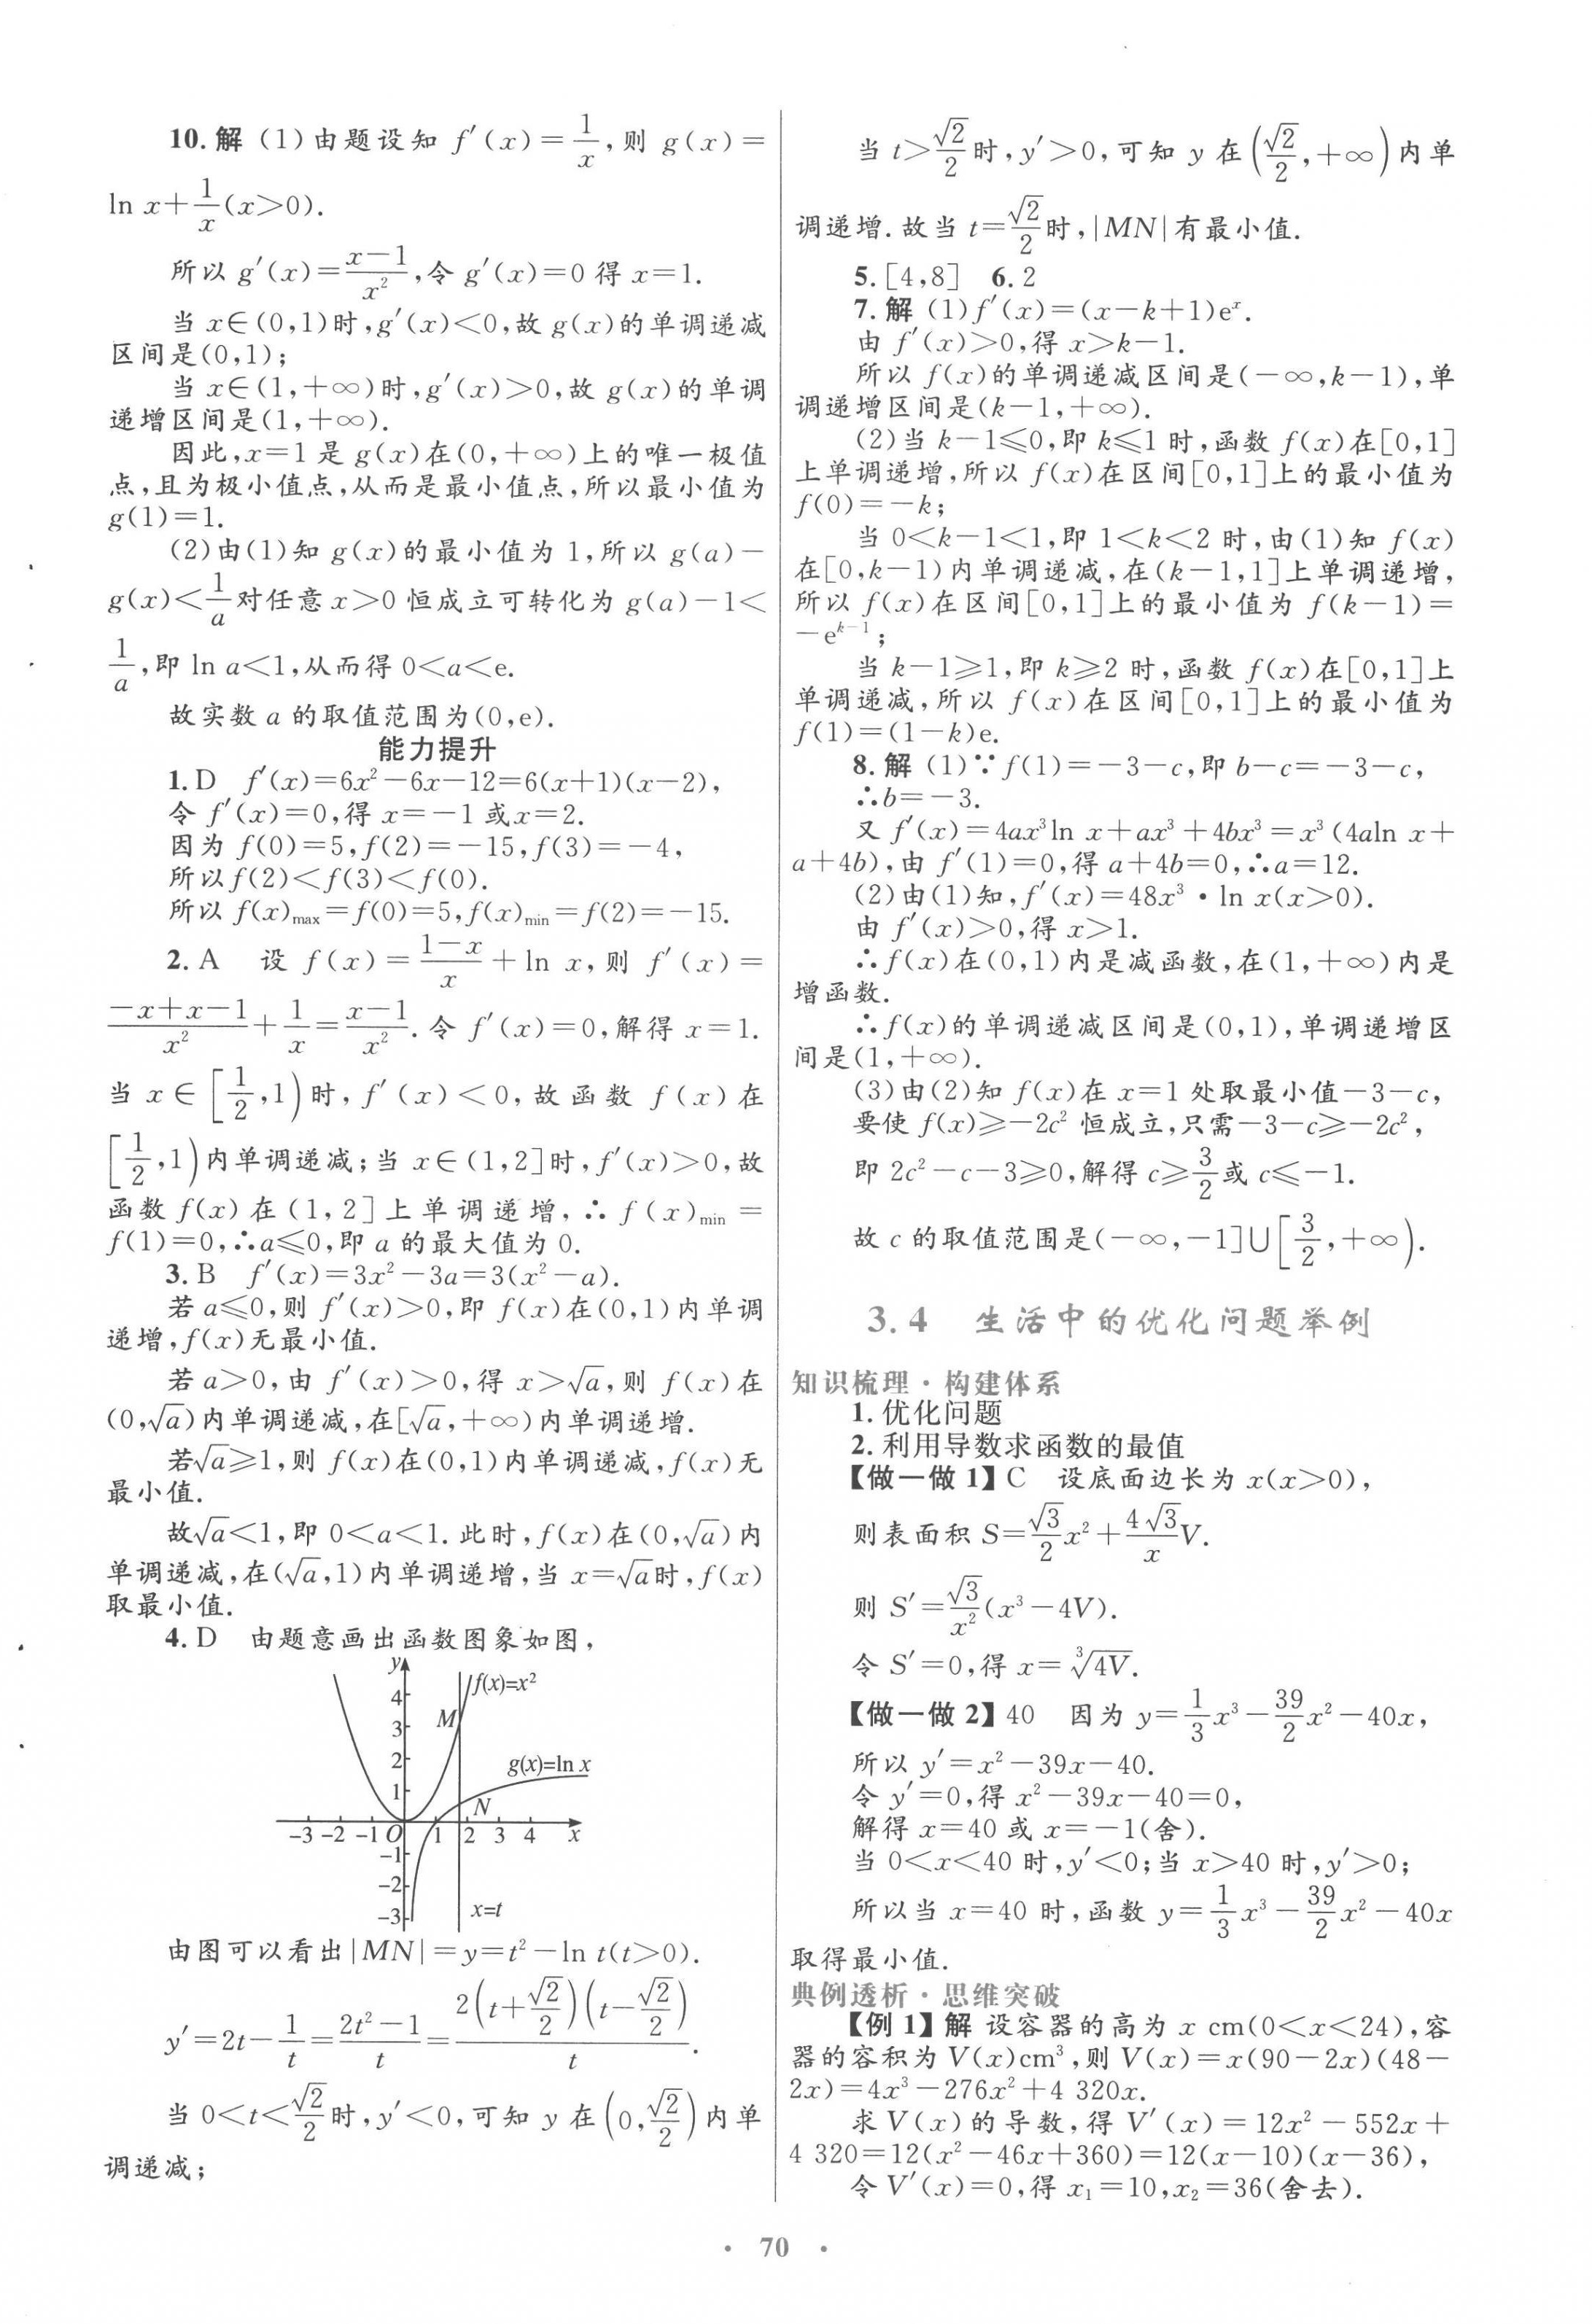 10. 解 (1)由题设知 f′(x)=1/x,则 g(x)=
ln x+1/x(x>0).
所以 g′(x)=(x-1)/x²,令 g′(x)=0 得 x=1.
当 x∈(0,1)时,g′(x)<0,故 g(x)的单调递减
区间是(0,1);
当 x∈(1,+∞)时,g′(x)>0,故 g(x)的单调
递增区间是(1,+∞).
因此,x=1 是 g(x)在(0,+∞)上的唯一极值
点,且为极小值点,从而是最小值点,所以最小值为
g(1)=1.
(2)由(1)知 g(x)的最小值为 1,所以 g(a)-
g(x)<1/a 对任意 x>0 恒成立可转化为 g(a)-1<
1/a,即 ln a<1,从而得 0<a<e.
故实数 a 的取值范围为(0,e).
能力提升
1. D f′(x)=6x²-6x-12=6(x+1)(x-2),
令 f′(x)=0,得 x=-1 或x=2.
因为 f(0)=5,f(2)=-15,f(3)=-4,
所以f(2)<f(3)<f(0).
所以 f(x)max=f(0)=5,f(x)min=f(2)=-15.
2. A 设 f(x)=(1-x)/x+ln x,则 f′(x)=
(-x+x-1)/x²+1/x=(x-1)/x². 令 f′(x)=0,解得 x=1.
当 x∈[1/2,1)时,f′(x)<0,故函数 f(x)在
[1/2,1)内单调递减;当 x∈(1,2]时,f′(x)>0,故
函数 f(x)在(1,2]上单调递增,∴f(x)min=
f(1)=0,∴a≤0,即 a 的最大值为 0.
3. B f′(x)=3x²-3a=3(x²-a).
若 a≤0,则 f′(x)>0,即 f(x)在(0,1)内单调
递增,f(x)无最小值.
若 a>0,由 f′(x)>0,得 x>√a,则 f(x)在
(0,√a)内单调递减,在[√a,+∞)内单调递增.
若√a≥1,则 f(x)在(0,1)内单调递减,f(x)无
最小值.
故√a<1,即 0<a<1. 此时,f(x)在(0,√a)内
单调递减,在(√a,1)内单调递增,当 x=√a时,f(x)
取最小值.
4. D 由题意画出函数图象如图,
y
f(x)=x²
4
M
3
2
g(x)=ln x
1
N
-3 -2 -1 O 1 2 3 4 x
-1
-2
-3
x=t
由图可以看出|MN|=y=t²-ln t(t>0).
y′=2t-1/t=(2t²-1)/t=2(t+√2/2)(t-√2/2)/t.
当 0<t<√2/2时,y′<0,可知 y 在(0,√2/2)内单
调递减;
当 t>√2/2时,y′>0,可知 y 在(√2/2,+∞)内单
调递增. 故当 t=√2/2时,|MN|有最小值.
5. [4,8] 6. 2
7. 解 (1)f′(x)=(x-k+1)eˣ.
由 f′(x)>0,得 x>k-1.
所以 f(x)的单调递减区间是(-∞,k-1),单
调递增区间是(k-1,+∞).
(2)当 k-1≤0,即 k≤1 时,函数 f(x)在[0,1]
上单调递增,所以 f(x)在区间[0,1]上的最小值为
f(0)=-k;
当 0<k-1<1,即 1<k<2 时,由(1)知 f(x)
在[0,k-1)内单调递减,在(k-1,1]上单调递增,
所以 f(x)在区间[0,1]上的最小值为 f(k-1)=
-eᵏ⁻¹;
当 k-1≥1,即 k≥2 时,函数 f(x)在[0,1]上
单调递减,所以 f(x)在区间[0,1]上的最小值为
f(1)=(1-k)e.
8. 解 (1)∵f(1)=-3-c,即 b-c=-3-c,
∴b=-3.
又 f′(x)=4ax³ln x+ax³+4bx³=x³(4aln x+
a+4b),由 f′(1)=0,得 a+4b=0,∴a=12.
(2)由(1)知,f′(x)=48x³·ln x(x>0).
由 f′(x)>0,得 x>1.
∴f(x)在(0,1)内是减函数,在(1,+∞)内是
增函数.
∴f(x)的单调递减区间是(0,1),单调递增区
间是(1,+∞).
(3)由(2)知 f(x)在 x=1 处取最小值-3-c,
要使 f(x)≥-2c² 恒成立,只需-3-c≥-2c²,
即 2c²-c-3≥0,解得 c≥3/2或 c≤-1.
故 c 的取值范围是(-∞,-1]∪[3/2,+∞).
3.4 生活中的优化问题举例
知识梳理·构建体系
1. 优化问题
2. 利用导数求函数的最值
【做一做 1】C 设底面边长为 x(x>0),
则表面积 S=√3/2 x²+4√3/x V.
则 S′=√3/x²(x³-4V).
令 S′=0,得 x=∛4V.
【做一做 2】40 因为 y=1/3 x³-39/2 x²-40x,
所以 y′=x²-39x-40.
令 y′=0,得 x²-39x-40=0,
解得 x=40 或 x=-1(舍).
当 0<x<40 时,y′<0;当 x>40 时,y′>0;
所以当 x=40 时,函数 y=1/3 x³-39/2 x²-40x
取得最小值.
典例透析·思维突破
【例 1】解 设容器的高为 x cm(0<x<24),容
器的容积为 V(x)cm³,则 V(x)=x(90-2x)(48-
2x)=4x³-276x²+4 320x.
求 V(x)的导数,得 V′(x)=12x²-552x+
4 320=12(x²-46x+360)=12(x-10)(x-36),
令 V′(x)=0,得 x₁=10,x₂=36(舍去).
· 70 ·